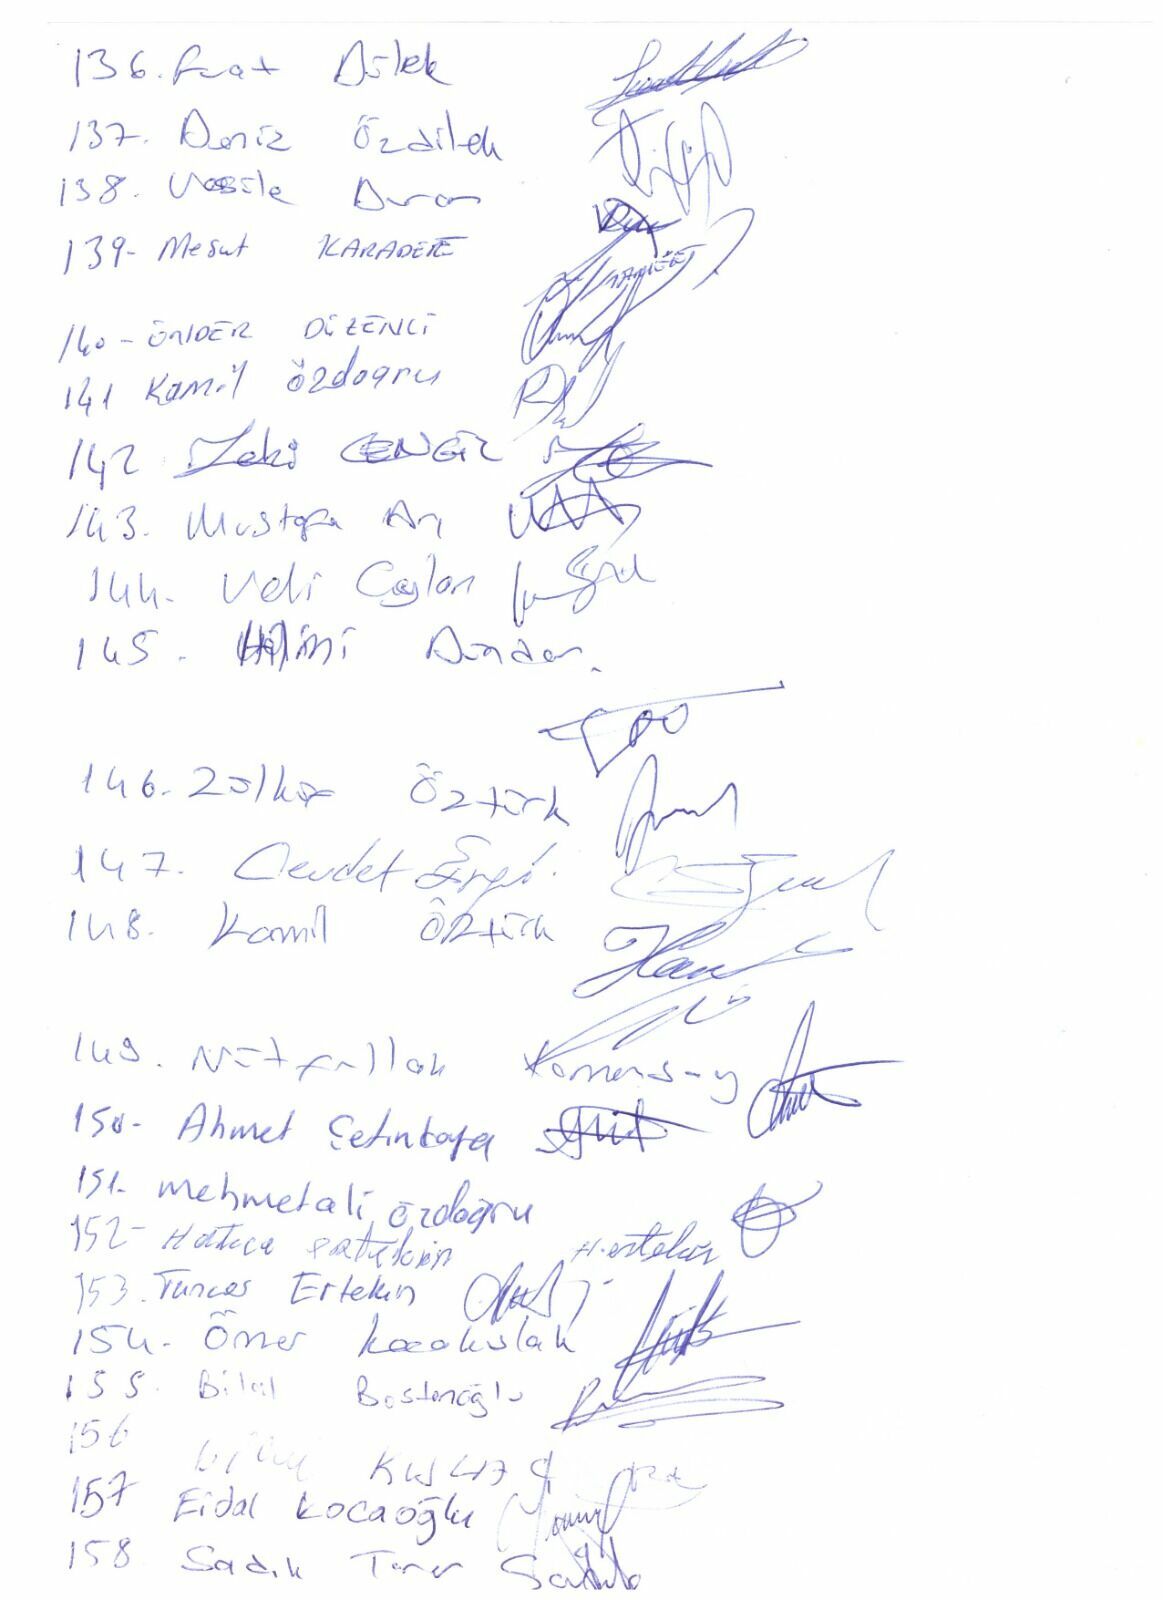 136. Fuat Dilek
137. Deniz Özdilek
138. Vesile Duran
139- Mesut KARADERE
140- ÖNDER DÜZENLİ
141 Kamil Özdoğru
142 Zeki CENGİZ
143. Mustafa Arı
144. Veli Ceylan
145. Hilmi Dindar.
146. Zülküf Öztürk
147. Cevdet
148. Kamil Öztürk
149.
150- Ahmet Çetinkaya
151- Mehmetali Özdoğru
152- Hatice ertekin H.ertekin
153. Tuncer Ertekin
154- Ömer
155. Bilal Bostanoğlu
156
157 Erdal Kocaoğlu
158. Sadık Taner